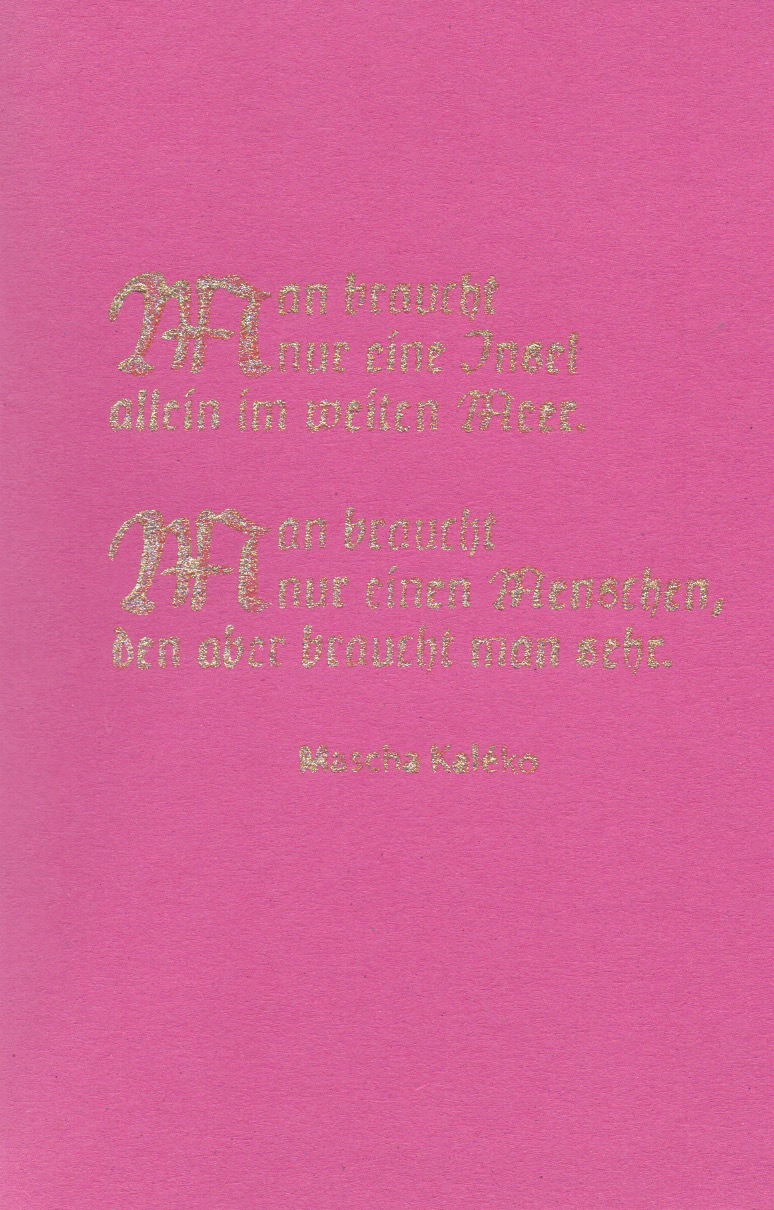 Man braucht
nur eine Insel
allein im weiten Meer.
Man braucht
nur einen Menschen,
den aber braucht man sehr.
Mascha Kaléko